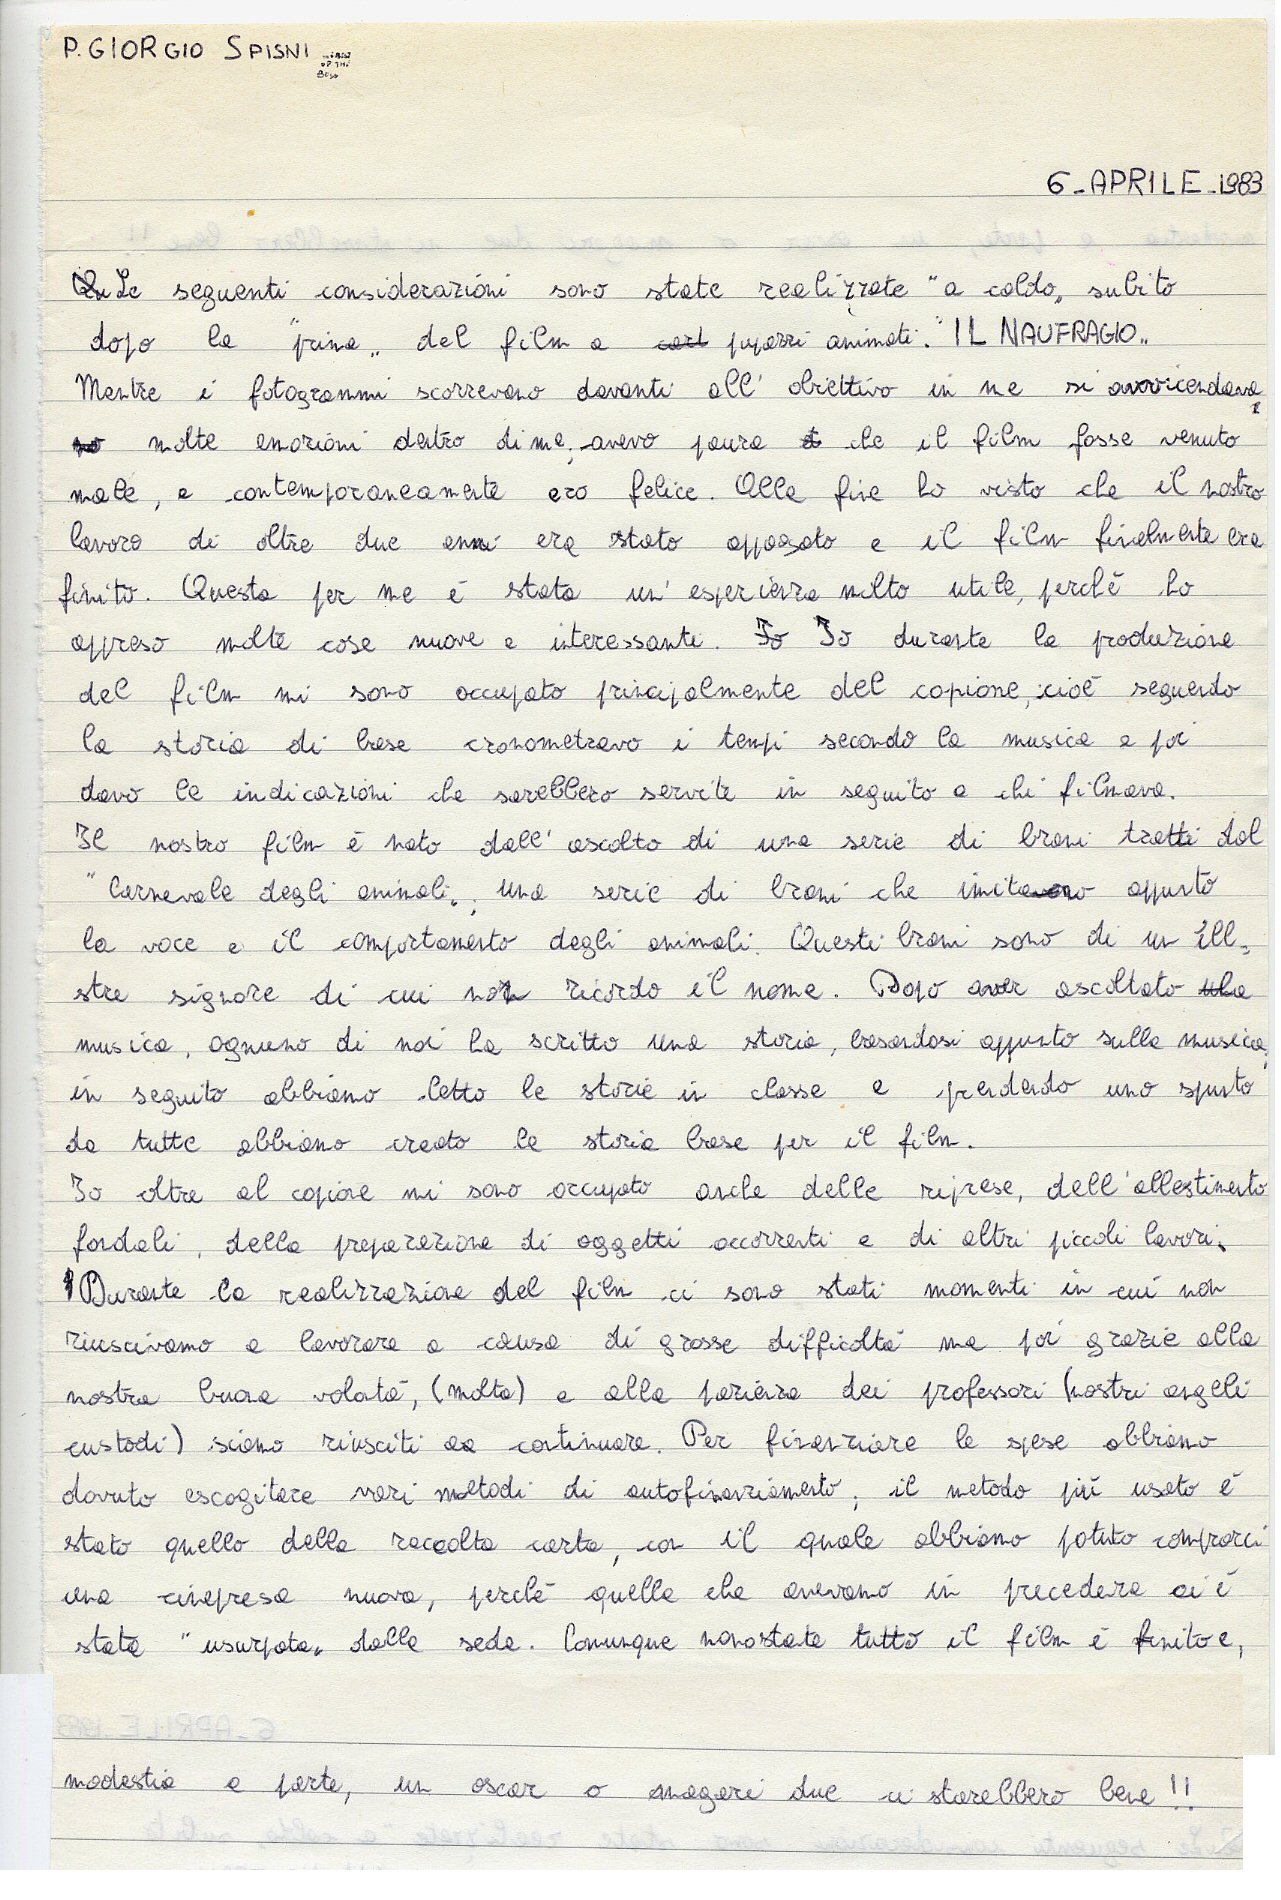 P. GIORGIO SPISNI
6_APRILE_1983
Le seguenti considerazioni sono state realizzate "a caldo„ subito
dopo la "prima„ del film a pupazzi animati: "IL NAUFRAGIO„
Mentre i fotogrammi scorrevano davanti all'obiettivo in me si avvicendava
molte emozioni dentro di me; avevo paura che il film fosse venuto
male, e contemporaneamente ero felice. Alla fine ho visto che il nostro
lavoro di oltre due anni era stato appagato e il film finalmente era
finito. Questa per me è stata un'esperienza molto utile, perché ho
appreso molte cose nuove e interessanti. Io durante la produzione
del film mi sono occupato principalmente del copione, cioè seguendo
la storia di base cronometravo i tempi secondo la musica e poi
davo le indicazioni che sarebbero servite in seguito a chi filmava.
Il nostro film è nato dall'ascolto di una serie di brani tratti dal
"Carnevale degli animali„; una serie di brani che imitano appunto
la voce e il comportamento degli animali. Questi brani sono di un ill=
stre signore di cui non ricordo il nome. Dopo aver ascoltato la
musica, ognuno di noi ha scritto una storia, basandosi appunto sulla musica;
in seguito abbiamo letto le storie in classe e prendendo uno spunto
da tutte abbiamo creato la storia base per il film.
Io oltre al copione mi sono occupato anche delle riprese, dell'allestimento
fondali, della preparazione di oggetti occorrenti e di altri piccoli lavori.
Durante la realizzazione del film ci sono stati momenti in cui non
riuscivamo a lavorare a causa di grosse difficoltà ma poi grazie alla
nostra buona volatà, (molta) e alla pazienza dei professori (nostri angeli
custodi) siamo riusciti a continuare. Per finanziare le spese abbiamo
dovuto escogitare vari metodi di autofinanziamento; il metodo più usato è
stato quello della raccolta carta, con il quale abbiamo potuto comprarci
una cinepresa nuova, perché quella che avevamo in precedenza ci è
stata "usurpata„ dalla sede. Comunque nonostante tutto il film è finito e,
modestia a parte, un oscar o magari due ci starebbero bene!!